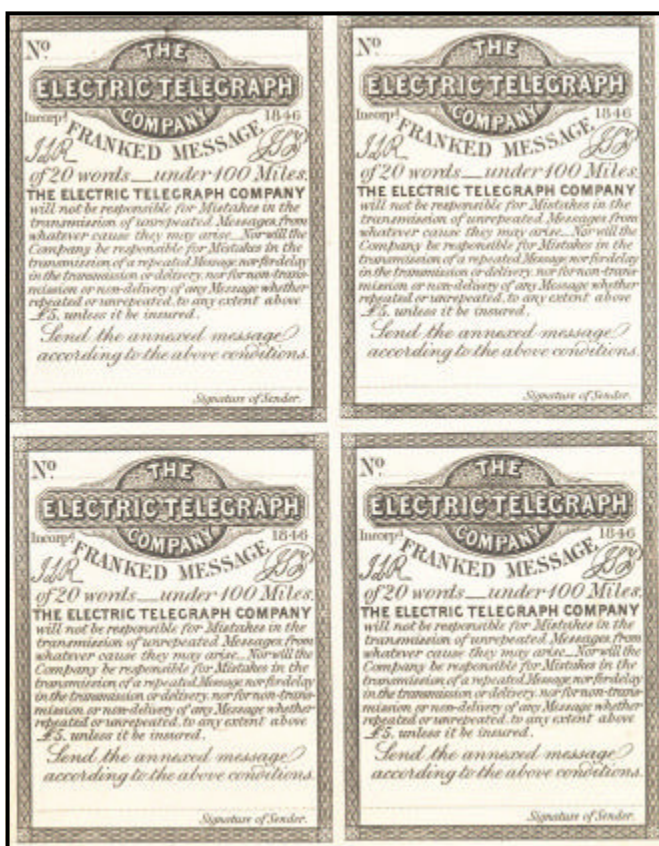 Nº
THE
ELECTRIC TELEGRAPH
COMPANY
Incorpd 1846
FRANKED MESSAGE
of 20 words__under 100 Miles.
THE ELECTRIC TELEGRAPH COMPANY
will not be responsible for Mistakes in the
transmission of unrepeated Messages, from
whatever cause they may arise._Nor will the
Company be responsible for Mistakes in the
transmission of a repeated Message, nor for delay
in the transmission or delivery, nor for non-trans-
mission or non-delivery of any Message whether
repeated or unrepeated, to any extent above
£5, unless it be insured.
Send the annexed message
according to the above conditions.
Signature of Sender.
Nº
THE
ELECTRIC TELEGRAPH
COMPANY
Incorpd 1846
FRANKED MESSAGE
of 20 words__under 100 Miles.
THE ELECTRIC TELEGRAPH COMPANY
will not be responsible for Mistakes in the
transmission of unrepeated Messages, from
whatever cause they may arise._Nor will the
Company be responsible for Mistakes in the
transmission of a repeated Message, nor for delay
in the transmission or delivery, nor for non-trans-
mission or non-delivery of any Message whether
repeated or unrepeated, to any extent above
£5, unless it be insured.
Send the annexed message
according to the above conditions.
Signature of Sender.
Nº
THE
ELECTRIC TELEGRAPH
COMPANY
Incorpd 1846
FRANKED MESSAGE
of 20 words__under 100 Miles.
THE ELECTRIC TELEGRAPH COMPANY
will not be responsible for Mistakes in the
transmission of unrepeated Messages, from
whatever cause they may arise._Nor will the
Company be responsible for Mistakes in the
transmission of a repeated Message, nor for delay
in the transmission or delivery, nor for non-trans-
mission or non-delivery of any Message whether
repeated or unrepeated, to any extent above
£5, unless it be insured.
Send the annexed message
according to the above conditions.
Signature of Sender.
Nº
THE
ELECTRIC TELEGRAPH
COMPANY
Incorpd 1846
FRANKED MESSAGE
of 20 words__under 100 Miles.
THE ELECTRIC TELEGRAPH COMPANY
will not be responsible for Mistakes in the
transmission of unrepeated Messages, from
whatever cause they may arise._Nor will the
Company be responsible for Mistakes in the
transmission of a repeated Message, nor for delay
in the transmission or delivery, nor for non-trans-
mission or non-delivery of any Message whether
repeated or unrepeated, to any extent above
£5, unless it be insured.
Send the annexed message
according to the above conditions.
Signature of Sender.